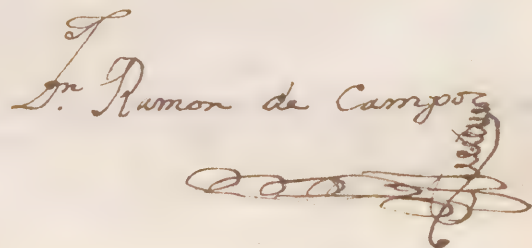 Dn. Ramon de Campos